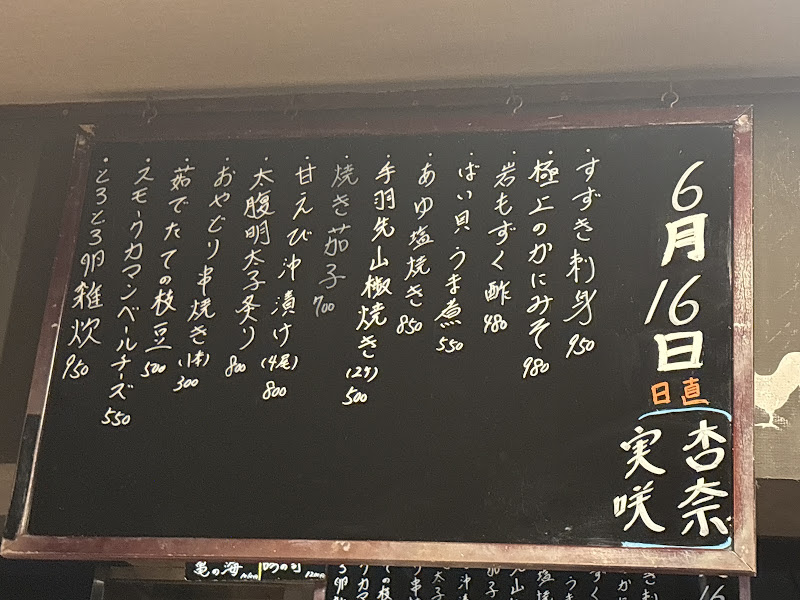 6月16日
日直
杏奈
実咲
・すずき刺身 950
・極上のかにみそ 980
・岩もずく酢 480
・ばい貝うま煮 550
・あゆ塩焼き 850
・手羽先山椒焼き(2ケ) 500
・焼き茄子 700
・甘えび沖漬け(4尾) 800
・太腹明太子炙り 800
・おやどり串焼き(1本) 300
・茹でたての枝豆 500
・スモークカマンベールチーズ 550
・とろとろ卵雑炊 950
亀の海